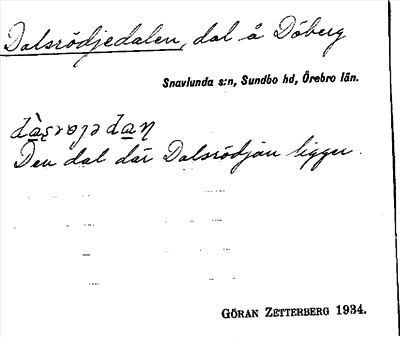 Dalsrödjedalen, dal å Döberg
Snavlunda s:n, Sundbo hd, Örebro län.
Den dal där Dalsrödjan ligger.
GÖRAN ZETTERBERG 1934.